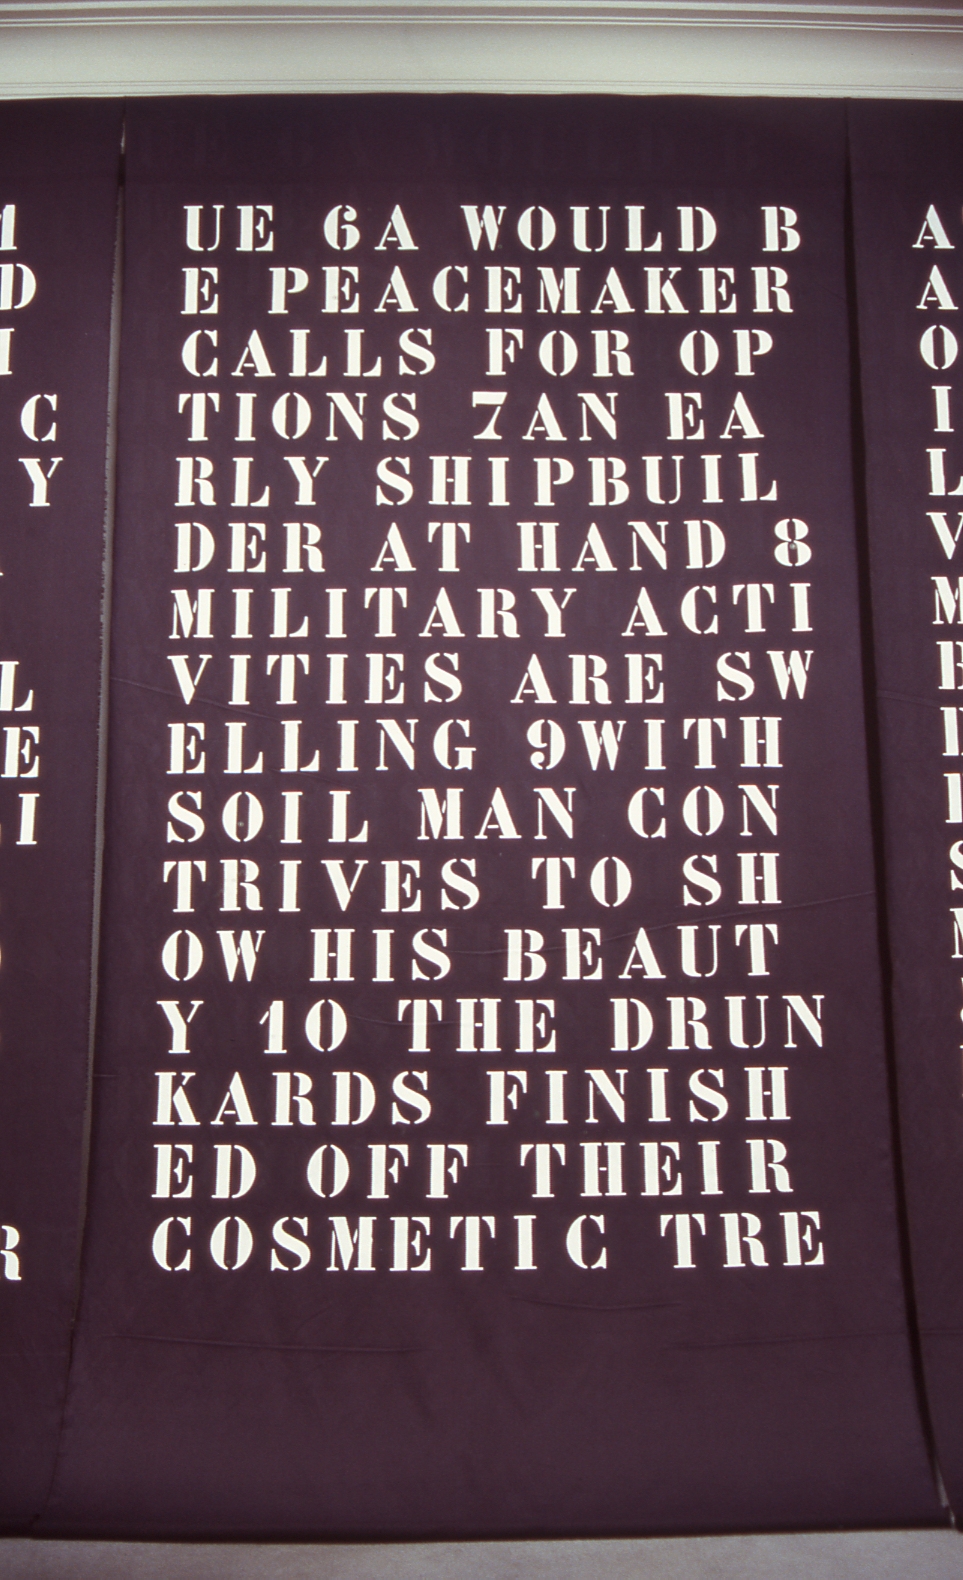 UE 6A WOULD B
E PEACEMAKER
CALLS FOR OP
TIONS 7AN EA
RLY SHIPBUIL
DER AT HAND 8
MILITARY ACTI
VITIES ARE SW
ELLING 9WITH
SOIL MAN CON
TRIVES TO SH
OW HIS BEAUT
Y 10 THE DRUN
KARDS FINISH
ED OFF THEIR
COSMETIC TRE